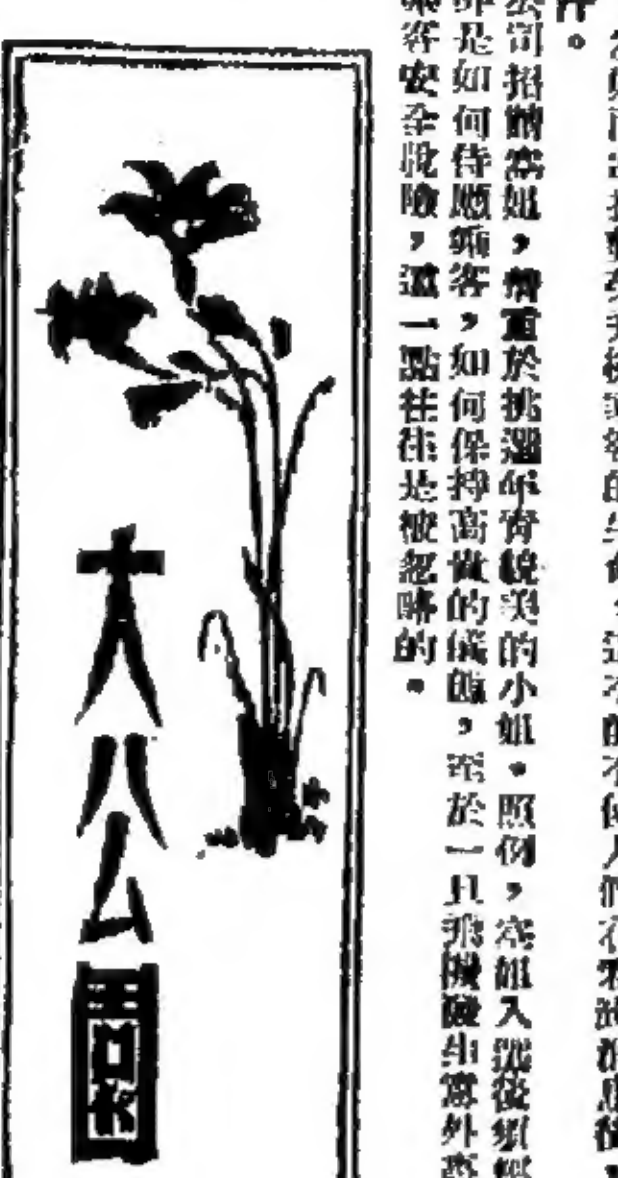 的生命，這不能不使人們在
公司招聘空姐，着重於挑選年青貌美的小姐。照例，空姐入選後須經
是如何侍應顧客，如何保持高的儀態，至於一旦飛機發生意外
乘客安全脫險，這一點往往是被忽略的。
大公園